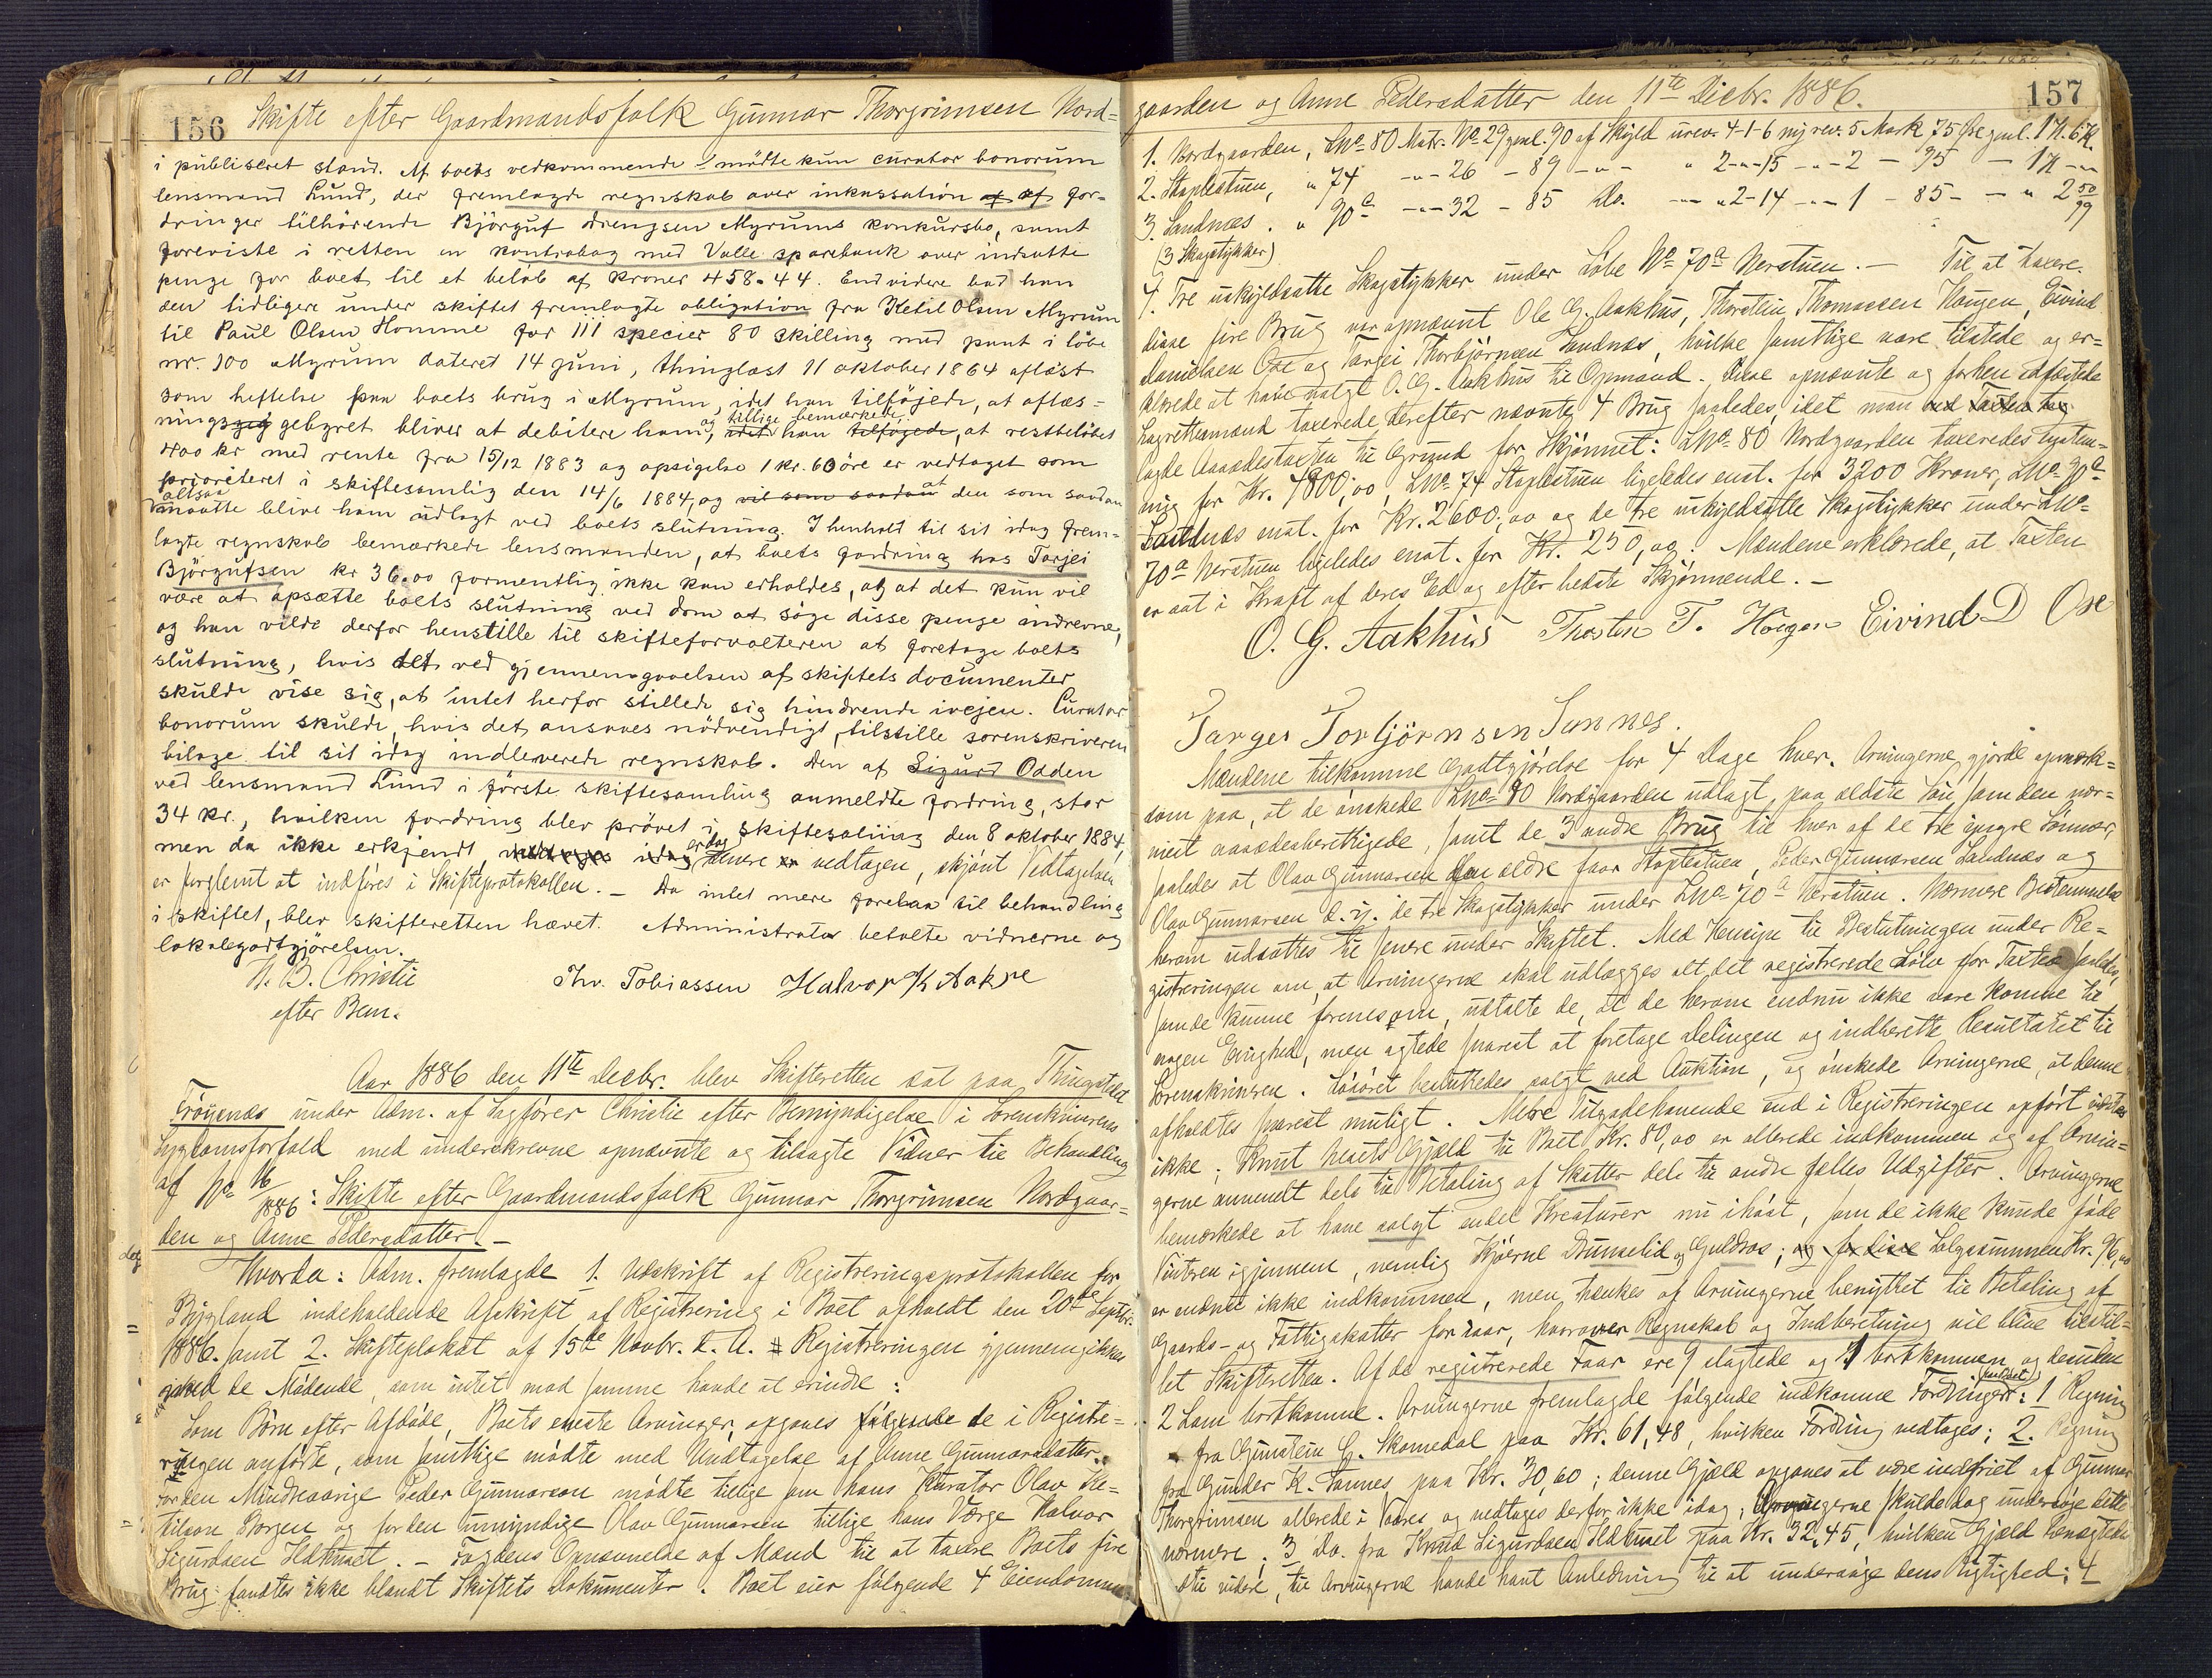 156 Skifte efter Gaardmandsfolk Gunnar Thorgrimsen Nord=
i publiceret stand. Af boets vedkommende mödte kun curator bonorum
lensmand Lund, der fremlagde regnskab over inkassation af for-
dringer tilhörende Björguf Drengsen Myrums konkursbo, samt
foreviste i retten en kontrabog med Valle sparebank over indsatte
penge for boet til et belöb af kroner 458.44. Endvidere bad han
den tidligere under skiftet fremlagte obligation fra Ketil Olsen Myrum
til Paul Olsen Homme for 111 specier 80 skilling med pant i löbe
nr. 100 Myrum dateret 14 juni, thinglæst 11 oktober 1864 aflöst
som heftelse paa boets brug i Myrum, idet han tilföjede, at aflæs=
nings gebyret bliver at debitere ham, og tillige bemærkede han tilföjede, at restbelöbet
400 kr med rente fra 15/12 1883 og opsigelse 1 kr. 60 öre er vedtaget som
prioriteret i skiftesamlig den 14/6 1884, og vil som saadan at den som saadan
altsaa maatte blive ham udlagt ved boets slutning. I henhold til sit idag frem-
lagte regnskab bemærkede lensmanden, at boets fordring hos Torjei
Björgufsen kr 36.00 formentlig ikke kan erholdes, og at det kun vil
være at opsætte boets slutning ved dom at söge disse penge inddrevne,
og han vilde derfor henstille til skifteforvalteren at foretage boets
slutning, hvis det ved gjennemgaaelsen af skiftets documenter
skulde vise sig, at intet herfor stillede sig hindrende ivejen. Curator
bonorum skulde, hvis det ansaaes nödvendigt, tilstille sorenskriveren
bilage til sit idag indleverede regnskab. Den af Sigurd Odden
ved lensmand Lund i förste skiftesamling anmeldte fordring, stor
34 kr., hvilken fordring blev prövet i skiftesaling den 8 oktober 1884,
men da ikke erkjendt, er dog senere vedtagen, skjönt Vedtagelsen
er forglemt at indföres i Skifteprotokollen. – Da intet mere forekom til behandling
i skiftet, blev skifteretten hævet. Administrator betalte vidnerne og
lokalegodtgjörelsen.
W. B. Christie
efter Bem.
Thv. Tobiassen Halvor K Aakre
Aar 1886 den 11te Decbr. blev Skifteretten sat paa Thingstedet
Fröysnæs under Adm. af Sagförer Christie efter Bemyndigelse i Sorenskriverens
Sygdomsforfald med underskrevne opnævnte og tilsagte Vidner til Behandling
af No 16/1886: Skifte efter Gaardmandsfolk Gunnar Thorgrimsen Nordgaar=
den og Anne Pedersdatter. –
Hvorda: Adm. fremlagde 1. Udskrift af Registreringsprotokollen for
Bygland indeholdende Afskrift af Registrering i Boet afholdt den 20de Septbr.
1886. samt 2. Skifteplakat af 15de Novbr. d. A. Registreringen gjennemgikkes
med de Mödende, som intet mod samme havde at erindre:
Som Börn efter Afdöde, Boets eneste Arvinger, opgaves følgende de i Registre=
ringen anförte, som samtlige mödte med Undtagelse af Anne Gunnarsdatter.
For den Mindreaarige Peder Gunnarsen mödte tillige som hans Kurator Olav Ke=
tilson Borgen og for den umyndige Olav Gunnarsen tillige hans Værge Halvor
Sigurdsen Helthuset. – Fogdens Opnævnelse af Mænd til at taxere Boets fire
Brug fandtes ikke blandt Skiftets Dokumenter. Boet eier fölgende 4 Eiendomme
157
gaarden og Anne Pedersdatter den 11te Decbr. 1886.
1. Nordgaarden, LNo 80 Matr. No 29 gml. 90 af Skyld urev. 4-1-6 ny rev. 5 Mark 75 Öre gml. 1 H. 6 K.
2. Staplestuen, " 74 -"- 26 - 89 -"- " 2-"-15 -"- 2 - 95 - 1 H -"-
3. Sandnæs. " 90a -"- 32 - 85 do. -"- " 2-14 -"- 1 - 85 - " 2 50/99
(3 Skogstykker)
4. Tre uskyldsatte Skogstykker under Löbe No 70a Nerstuen. – Til at taxere
disse fire Brug var opnævnt Ole G. Aakhus, Thorstein Thomassen Hougen, Eivind
Danielsen Ose og Tarjei Thorbjörnsen Sandnæs, hvilke samtlige vare tilstede og er=
klærede at have valgt O. G. Aakhus til Opmand. Disse opnævnte og forhen edfæstede
Lagrettesmænd taxerede derefter nævnte 4 Brug saaledes, idet man ved Taxten
lagde Aasædestaxten til Grund for Skjönnet: LNo 80 Nordgaarden taxeredes
for Kr. 4800,00, LNo 74 Staplestuen ligeledes enst. for 3200 Kroner, LNo 90a
Sandnæs enst. for Kr. 2600,00 og de tre uskyldsatte Skogstykker under LNo
70a Nerstuen ligeledes enst. for Kr. 250,00. Mændene erklærede, at Taxten
er sat i Kraft af deres Ed og efter bedste Skjönnende. –
O. G. Aakhus Thosten T. Hougen Eivind D Ose
Targei Torbjörnsen Sannes.
Mændene tilkomme Godtgjörelse for 4 Dage hver. Arvingerne gjorde opmærk=
som paa, at de önskede LNo 80 Nordgaarden udlagt paa ældste Sön som den nær=
mest aasædesberettigede, samt de 3 andre Brug til hver af de tre yngre Sönner,
saaledes at Olav Gunnarsen den ældre faar Staplestuen, Peder Gunnarsen Sandnæs og
Olav Gunnarsen d. y. de tre Skogstykker under LNo 70a Nerstuen. Nærmere Bestemmelse
herom udsattes til senere under Skiftet. Med Hensyn til Beslutningen under Re=
gistreringen om, at Arvingerne skal udlægges alt det registrerede Sölv for Taxten
som de kunne forenes om, udtalte de, at de herom endnu ikke vare komne til
nogen Enighed, men agtede snarest at foretage Delingen og indberette Resultatet til
Sorenskriveren. Lösöret besluttedes solgt ved Auktion, og önskede Arvingerne, at denne
afholdtes snarest muligt. Mere Tilgodehavende end i Registreringen opfört vidstes
ikke. Knut Gjæld til Boet Kr. 80,00 er allerede indkommen og af Arvin=
gerne anvendt dels til Betaling af Skatter dels til andre fælles Udgifter. Arvingerne
bemærkede at have solgt endel Kreaturer nu ihöst, som de ikke kunde föde
Vinteren igjennem, nemlig Kjörne Drunselid og Guldros; og for disse Salgssummen Kr. 96,00
er endnu ikke indkommen, men tænkes af Arvingerne benyttet til Betaling af
Gaards- og Fattigskatter for iaar, hvorover Regnskab og Indberetning vil blive tilstil=
let Skifteretten. Af de registrerede Faar ere 9 slagtede og 1 bortkommen og desuden
2 Lam bortkomne. Arvingerne fremlagde fölgende indkomne Fordringer: 1 Regning
fra Gunstein G. Skomedal paa Kr. 61,48, hvilken Fordring vedtages; 2. Regning
fra Gunder K. Sannes paa Kr. 30,60; denne Gjæld opgaves at være indfriet af Gunnar
Thorgrimsen allerede i Vaares og vedtages derfor ikke idag; Arvingerne skulde dog undersöge dette
nærmere; 3 do. fra Knud Sigurdsen Helthuset paa Kr. 32,45, hvilken Gjæld benægtedes
til videre, til Arvingerne havde havt Anledning til at undersöge dens Rigtighed; 4